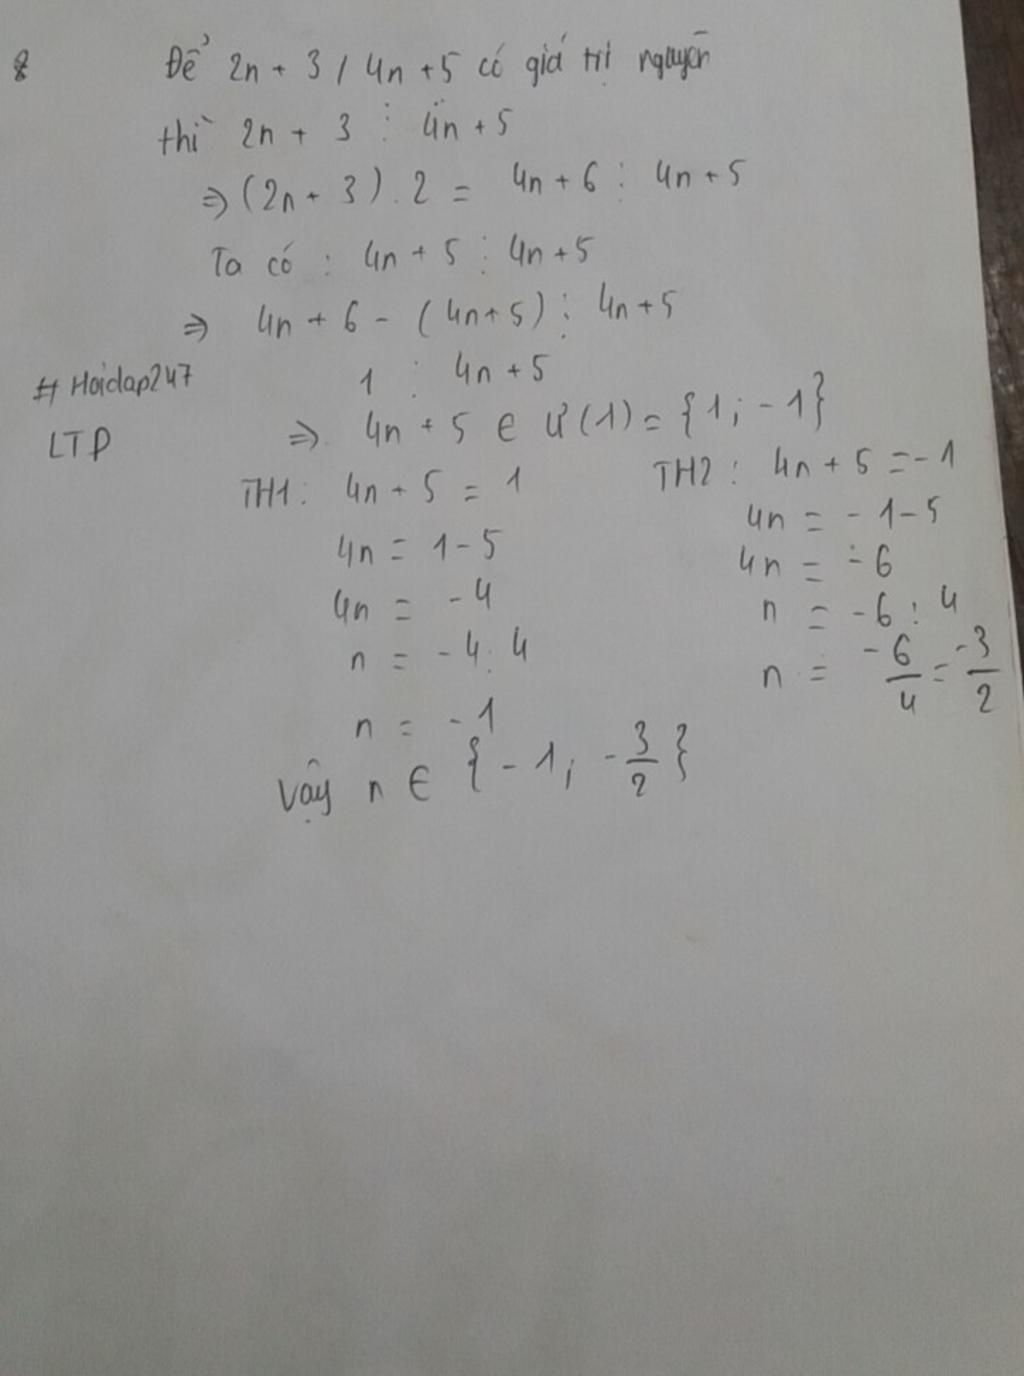 8
Để 2n + 3 / 4n + 5 có giá trị nguyên
thì 2n + 3 ⋮ 4n + 5
⇒ (2n + 3) . 2 = 4n + 6 ⋮ 4n + 5
Ta có : 4n + 5 ⋮ 4n + 5
⇒ 4n + 6 - (4n + 5) ⋮ 4n + 5
# Hoidap247
LTP
1 ⋮ 4n + 5
⇒ 4n + 5 ∈ Ư(1) = {1; -1}
TH1: 4n + 5 = 1
4n = 1 - 5
4n = -4
n = -4 : 4
n = -1
TH2: 4n + 5 = -1
4n = -1 - 5
4n = -6
n = -6 : 4
n = -6/4 = -3/2
Vậy n ∈ {-1; -3/2}